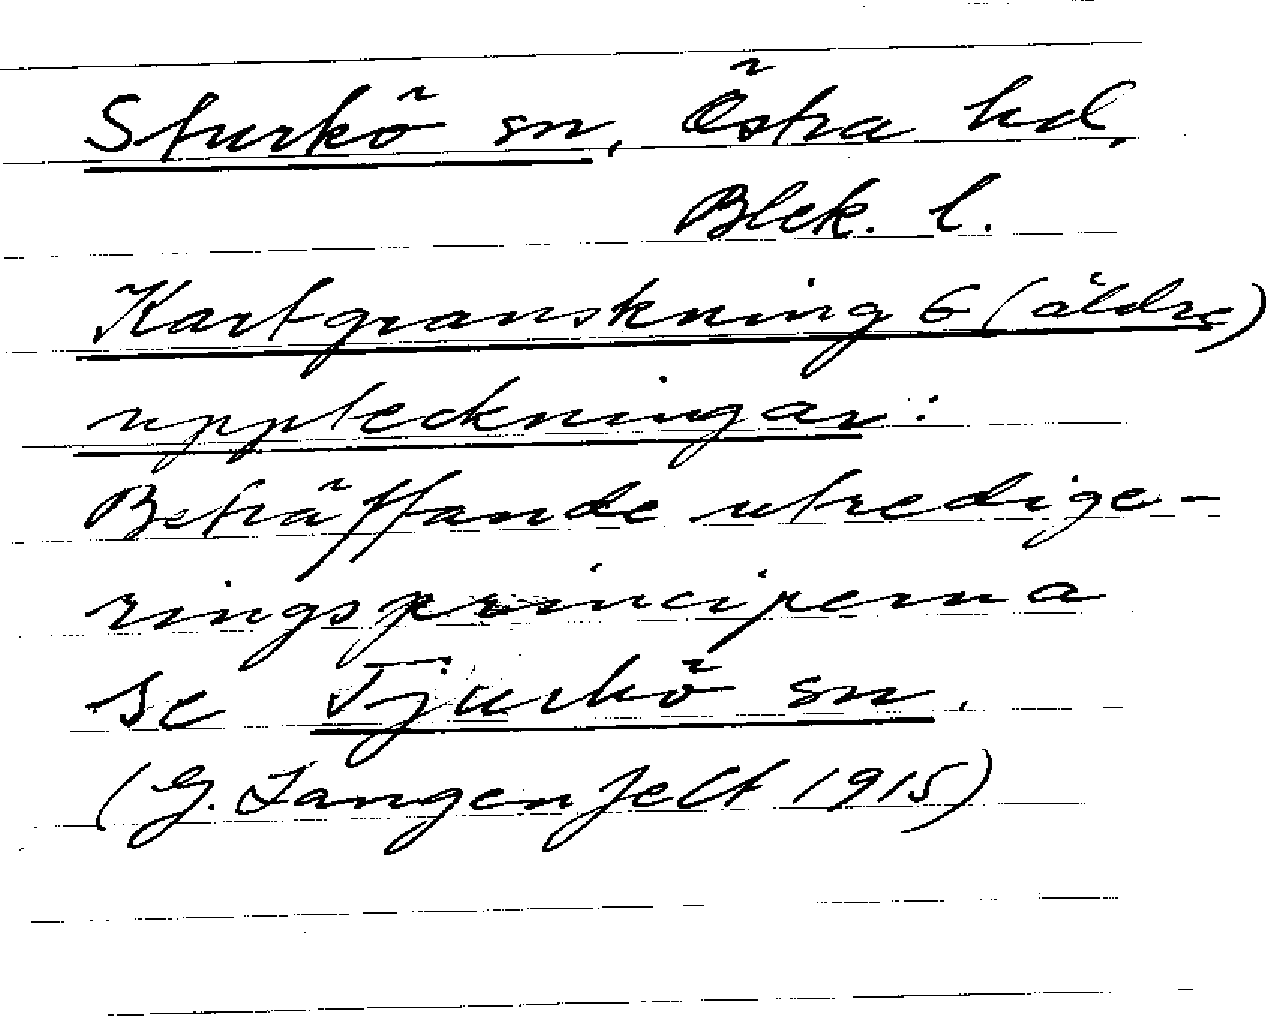 Sturkö sn, Östra hd,
Blek. l.
Kartgranskning G (äldre)
uppteckningar:
Beträffande utredige-
ringsprinciperna
se Tjurkö sn.
(G. Langenfelt 1915)